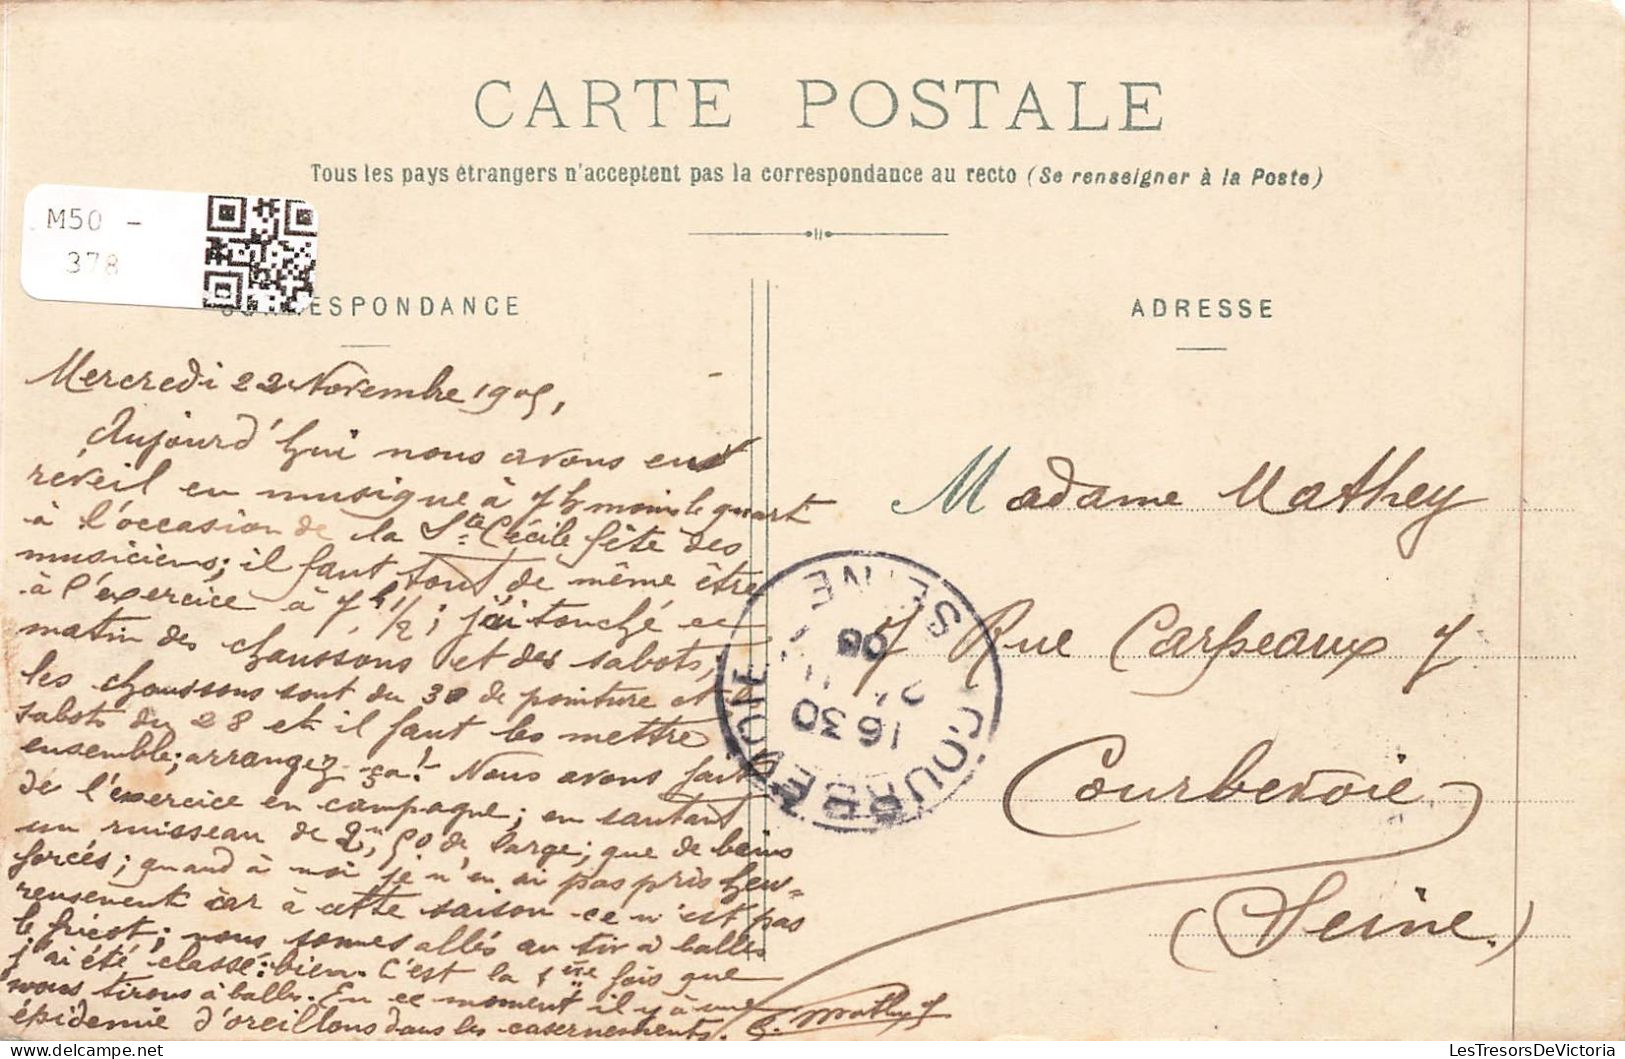 CARTE POSTALE
Tous les pays étrangers n'acceptent pas la correspondance au recto (Se renseigner à la Poste)
M50 -
378
CORRESPONDANCE
ADRESSE
Mercredi 22 Novembre 1905,
Aujourd'hui nous avons eu
réveil en musique à 7h moins le quart
à l'occasion de la Ste Cécile fête des
musiciens; il faut tout de même être
à l'exercice à 7h 1/2; j'ai touché ce
matin des chaussons et des sabots;
les chaussons sont du 30 de pointure et
sabots du 28 et il faut les mettre
ensemble; arrangez-ça! Nous avons fait
de l'exercice en campagne; en sautant
un ruisseau de 2m,50 de large; que de bains
forcés; quand à moi je n'en ai pas pris heu-
reusement car à cette saison ce n'est pas
le fricot; nous sommes allés au tir à balles
j'ai été classé: bien. C'est la 1ère fois que
nous tirons à balles. En ce moment il y a une
épidémie d'oreillons dans les casernements.
Madame Mathey
7 Rue Carpeaux 7
Courbevoie
(Seine.)
COURBEVOIE
SEINE
16 30
LesTresorsDeVictoria